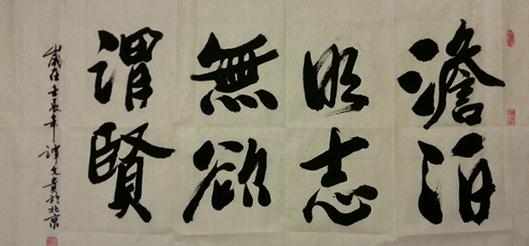 澹泊
明志
無欲
謂賢
歲在壬辰年 文貴於北京